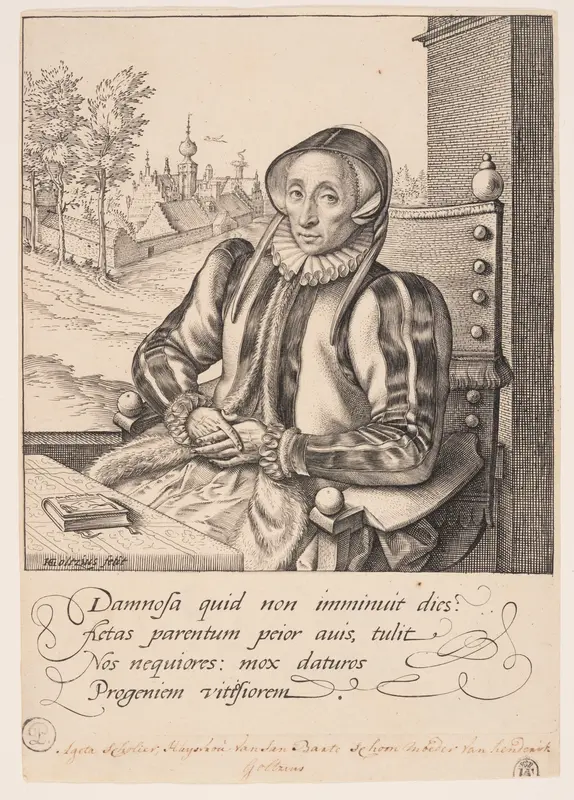 HGoltzius fecit
Damnosa quid non imminuit dies?
Aetas parentum peior auis, tulit
Nos nequiores: mox daturos
Progeniem vitiosiorem.
Ageta scholier, Huysvrou van Jan Baate schoon moeder van hendrick
Goltzius